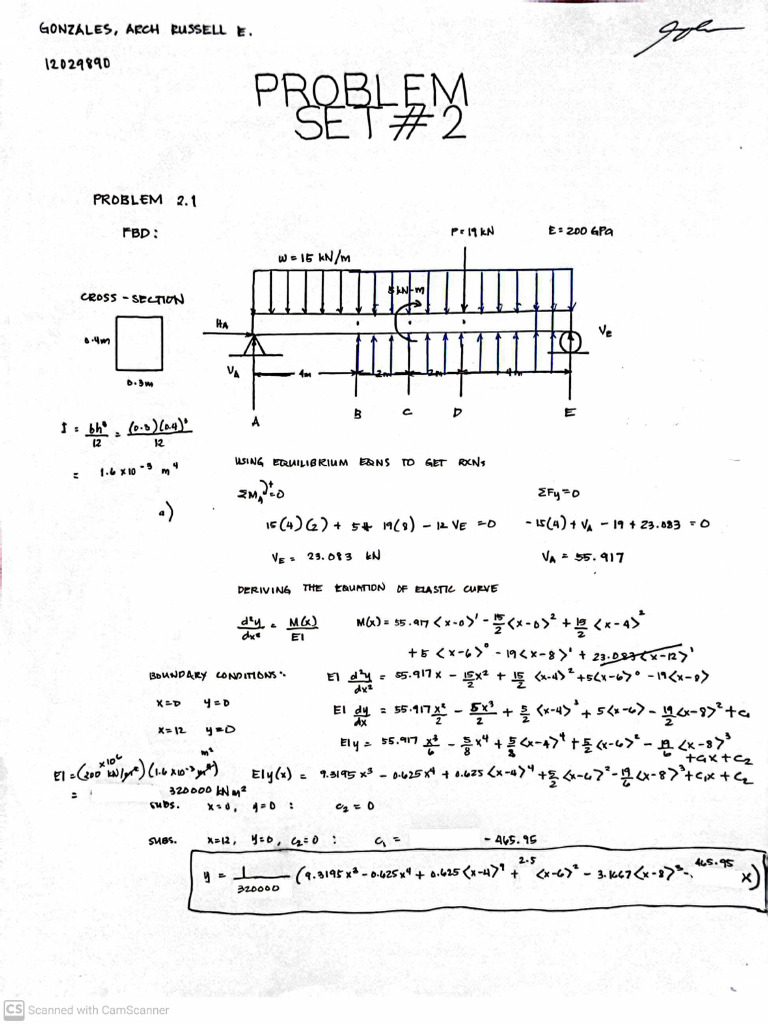 GONZALES, ARCH RUSSELL E.
12029890
PROBLEM
SET # 2
PROBLEM 2.1
FBD:
P = 19 kN
E = 200 GPa
w = 15 kN/m
CROSS-SECTION
5 kN-m
0.4m
0.3m
HA
VA
VE
4m
2m
2m
4m
A
B
C
D
E
I = bh³/12 = (0.3)(0.4)³/12
= 1.6 x10⁻³ m⁴
a)
USING EQUILIBRIUM EQNS TO GET RXNs
ΣMA = 0
ΣFy = 0
15(4)(2) + 5 + 19(8) - 12 VE = 0
- 15(4) + VA - 19 + 23.083 = 0
VE = 23.083 kN
VA = 55.917
DERIVING THE EQUATION OF ELASTIC CURVE
d²y/dx² = M(x)/EI
M(x) = 55.917 <x-0>¹ - 15/2 <x-0>² + 15/2 <x-4>²
+ 5 <x-6>⁰ - 19<x-8>¹ + 23.083<x-12>¹
BOUNDARY CONDITIONS:
x=0 y=0
x=12 y=0
EI d²y/dx² = 55.917x - 15/2 x² + 15/2 <x-4>² + 5<x-6>⁰ - 19<x-8>
EI dy/dx = 55.917 x²/2 - 5x³/2 + 5/2 <x-4>³ + 5<x-6> - 19/2 <x-8>² + C₁
EIy = 55.917 x³/6 - 5/8 x⁴ + 5/8 <x-4>⁴ + 5/2 <x-6>² - 19/6 <x-8>³
+ C₁x + C₂
EI = (200 x10⁶ kN/m²)(1.6 x10⁻³ m⁴)
= 320000 kN m²
EIy(x) = 9.3195 x³ - 0.625x⁴ + 0.625 <x-4>⁴ + 5/2 <x-6>² - 19/6 <x-8>³ + C₁x + C₂
SUBS. x=0, y=0 : C₂ = 0
SUBS. x=12, y=0, C₂=0 : C₁ = - 465.95
y = 1/320000 (9.3195 x³ - 0.625 x⁴ + 0.625 <x-4>⁴ + 2.5 <x-6>² - 3.1667 <x-8>³ - 465.95 x)
CS Scanned with CamScanner